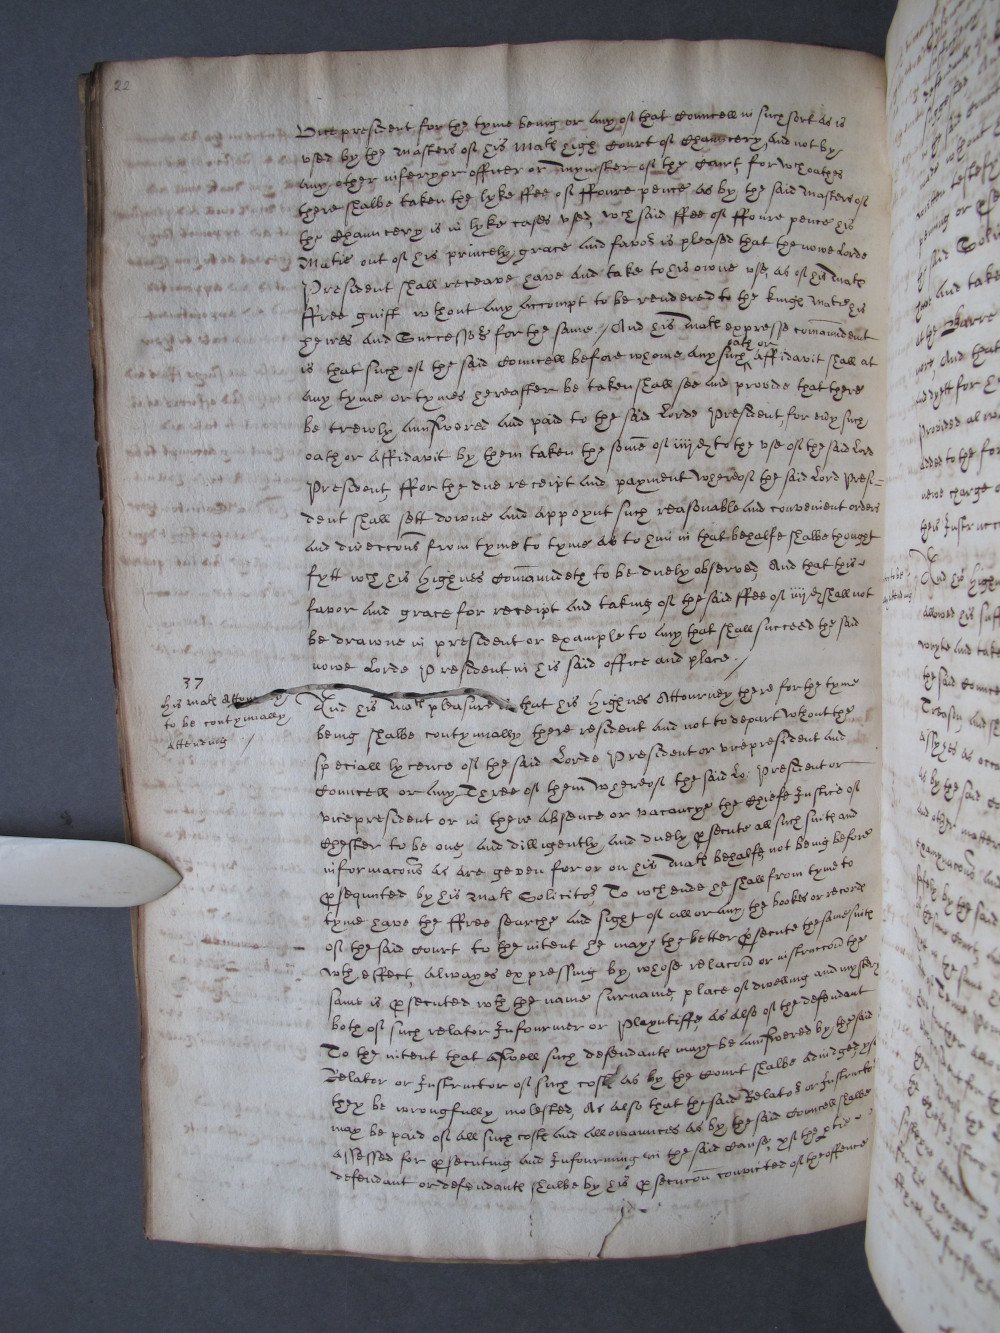 22
Vice president for the tyme being or any of that Councell in such sort as is
used by the Masters of his Ma:ts high Court of Chauncery, and not by
any other inferyor officer or mynister of the Court, for wch oathes
there shalbe taken the lyke ffee of ffoure pence as by the said Masters of
the Chauncery is in lyke cases used, wch said ffee of ffoure pence his
Matie out of his princely grace and favor is pleased that the nowe Lorde
President shall receave have and take to his owne use, as of his Mats
ffree guift wthout any accompt to be rendered to the kings Matie his
heires and Successors for the same / And his Mats expresse comaundemt
is that such of the said Councell before whome any such oath or Affidavit shall at
any tyme or tymes hereafter be taken shall see and provide that there
be trewly annswered and paid to the said Lorde President, for every such
oath or Affidavit by them taken the some of iiijd to the use of the said Lord
President, ffor the due receipt and payment whereof the said Lord Presi=
dent shall sett downe and appoynt such reasonable and convenient orders
and direccons from tyme to tyme as to him in that behalfe shalbe thought
fytt wch his Highnes comaundeth to be duely observed, And that this
favor and grace for receipt and taking of the said ffee of iiijd shall not
be drawne in president or example to any that shall succeed the said
nowe Lorde President in his said office and place /
37
his Mats Attorney
to be contynually
attending /
And his Mats pleasure is that his Highnes Attourney there for the tyme
being shalbe contynually there resident and not to depart wthout the
speciall lycence of the said Lorde President or vicepresident and
Councell or any Three of them whereof the said Lo: President or
vicepresident or in there absence or vacancye the Chiefe Justice of
Chester to be one, and dilligently and duely psecute all such suits and
informacons as are geven for or on his Mats behalfe not being before
psequuted by his Mats Solicitor, To wch ende he shall from tyme to
tyme have the ffree searche and sight of all or any the bookes or records
of the said Court to the intent he maye the better psecute the same suits
wth effect, alwayes expressing by whose relacon or instruccon the
same is psecuted wth the name surname, place of dwelling and mystery
both of such relator Infourmer or Playntiffe, as also of the defendant
To the intent that aswell such defendants maye be annswered by the said
Relator or Instructor of such costs as by the Court shalbe adiudged yf
they be wrongfully molested, As also that the said Relator or Instructor
may be paid of all such costs and allowaunces as by the said Councell shalbe
assessed for psecuting and Infourming in the said Cause, yf the ptie
defendant or defendants shalbe by his psecucon convicted of the offence